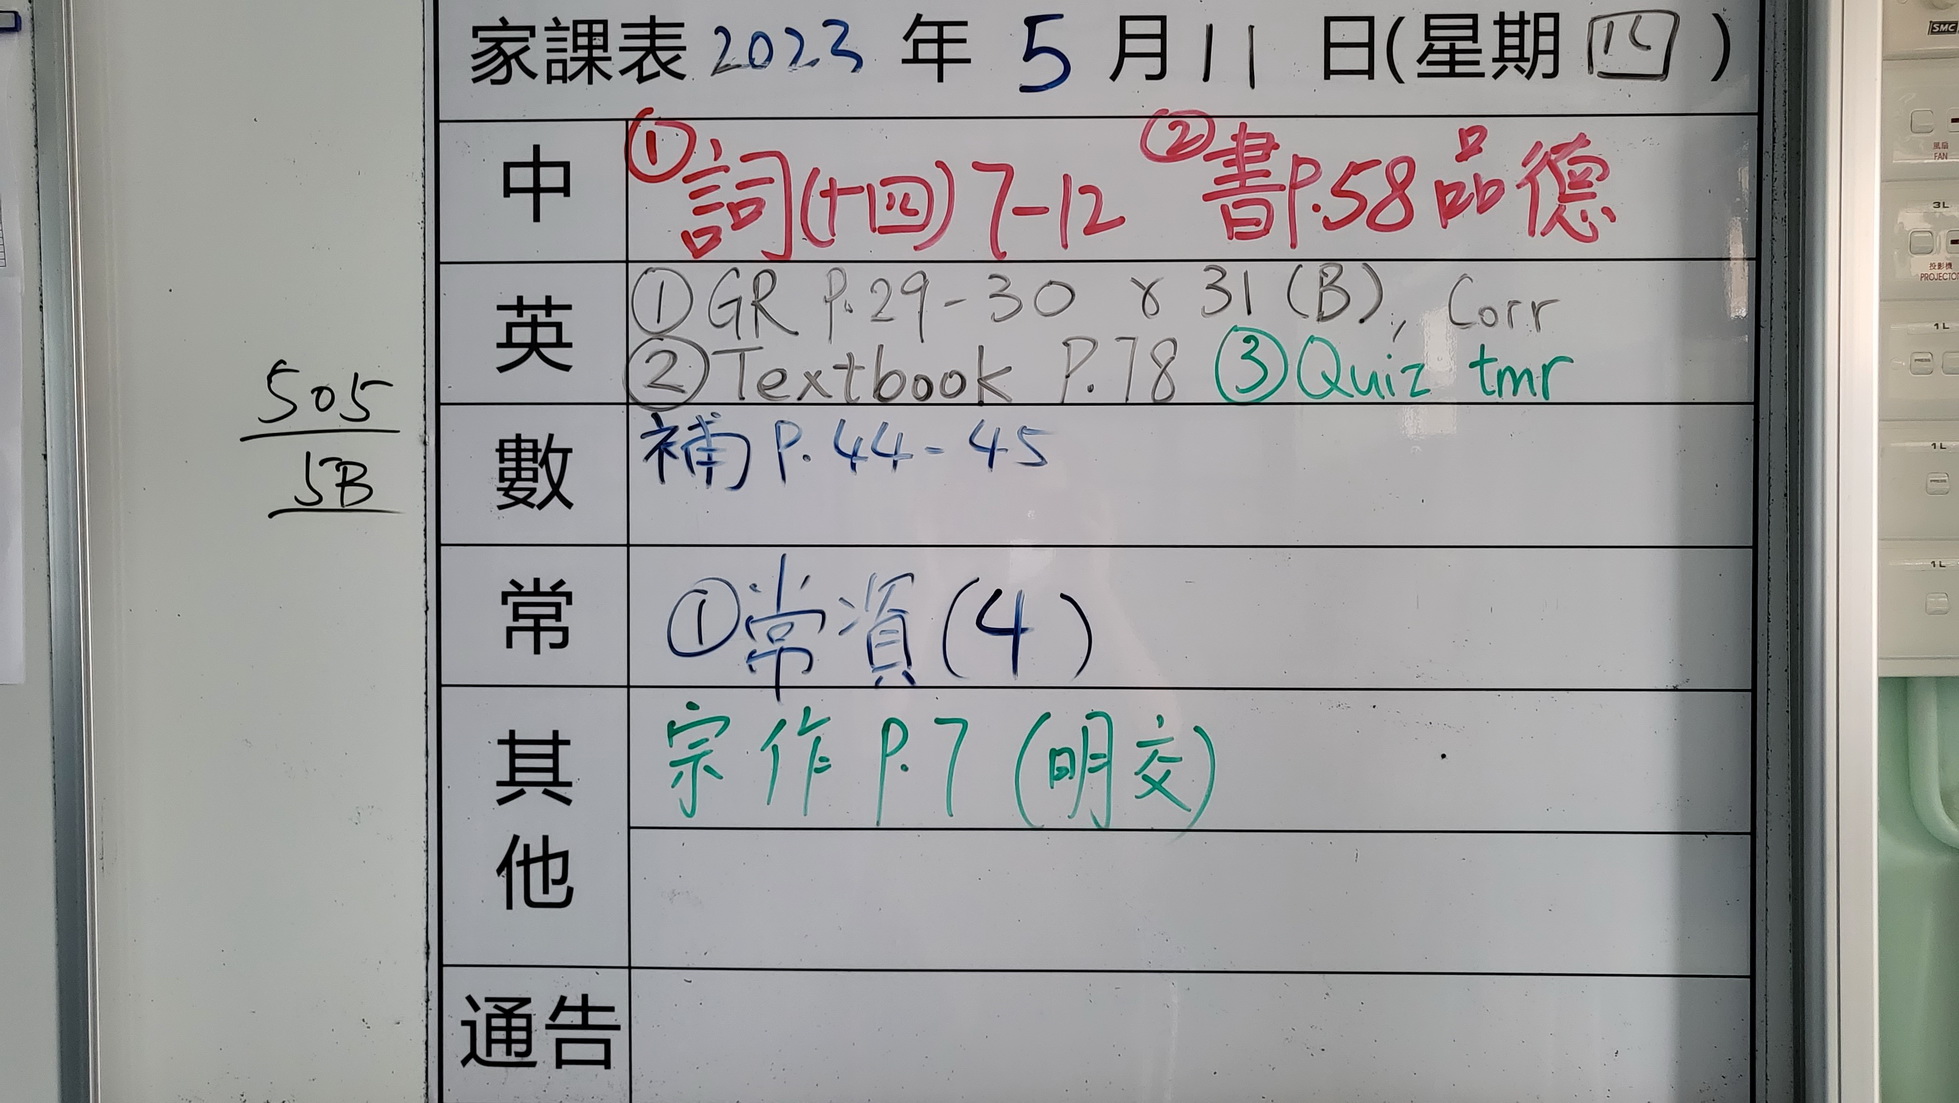 家課表 2023 年 5 月 11 日(星期四)
中
①詞(十四) 7-12 ②書P.58品德
英
①GR P.29-30 & 31 (B), Corr
②Textbook P.78 ③Quiz tmr
數
補 P.44-45
常
①常(4)
其他
宗作 P.7 (明交)
通告
505
5B
SMC
風扇
FAN
3L
投影機
PROJECTOR
1L
PRESS
1L
PRESS
1L